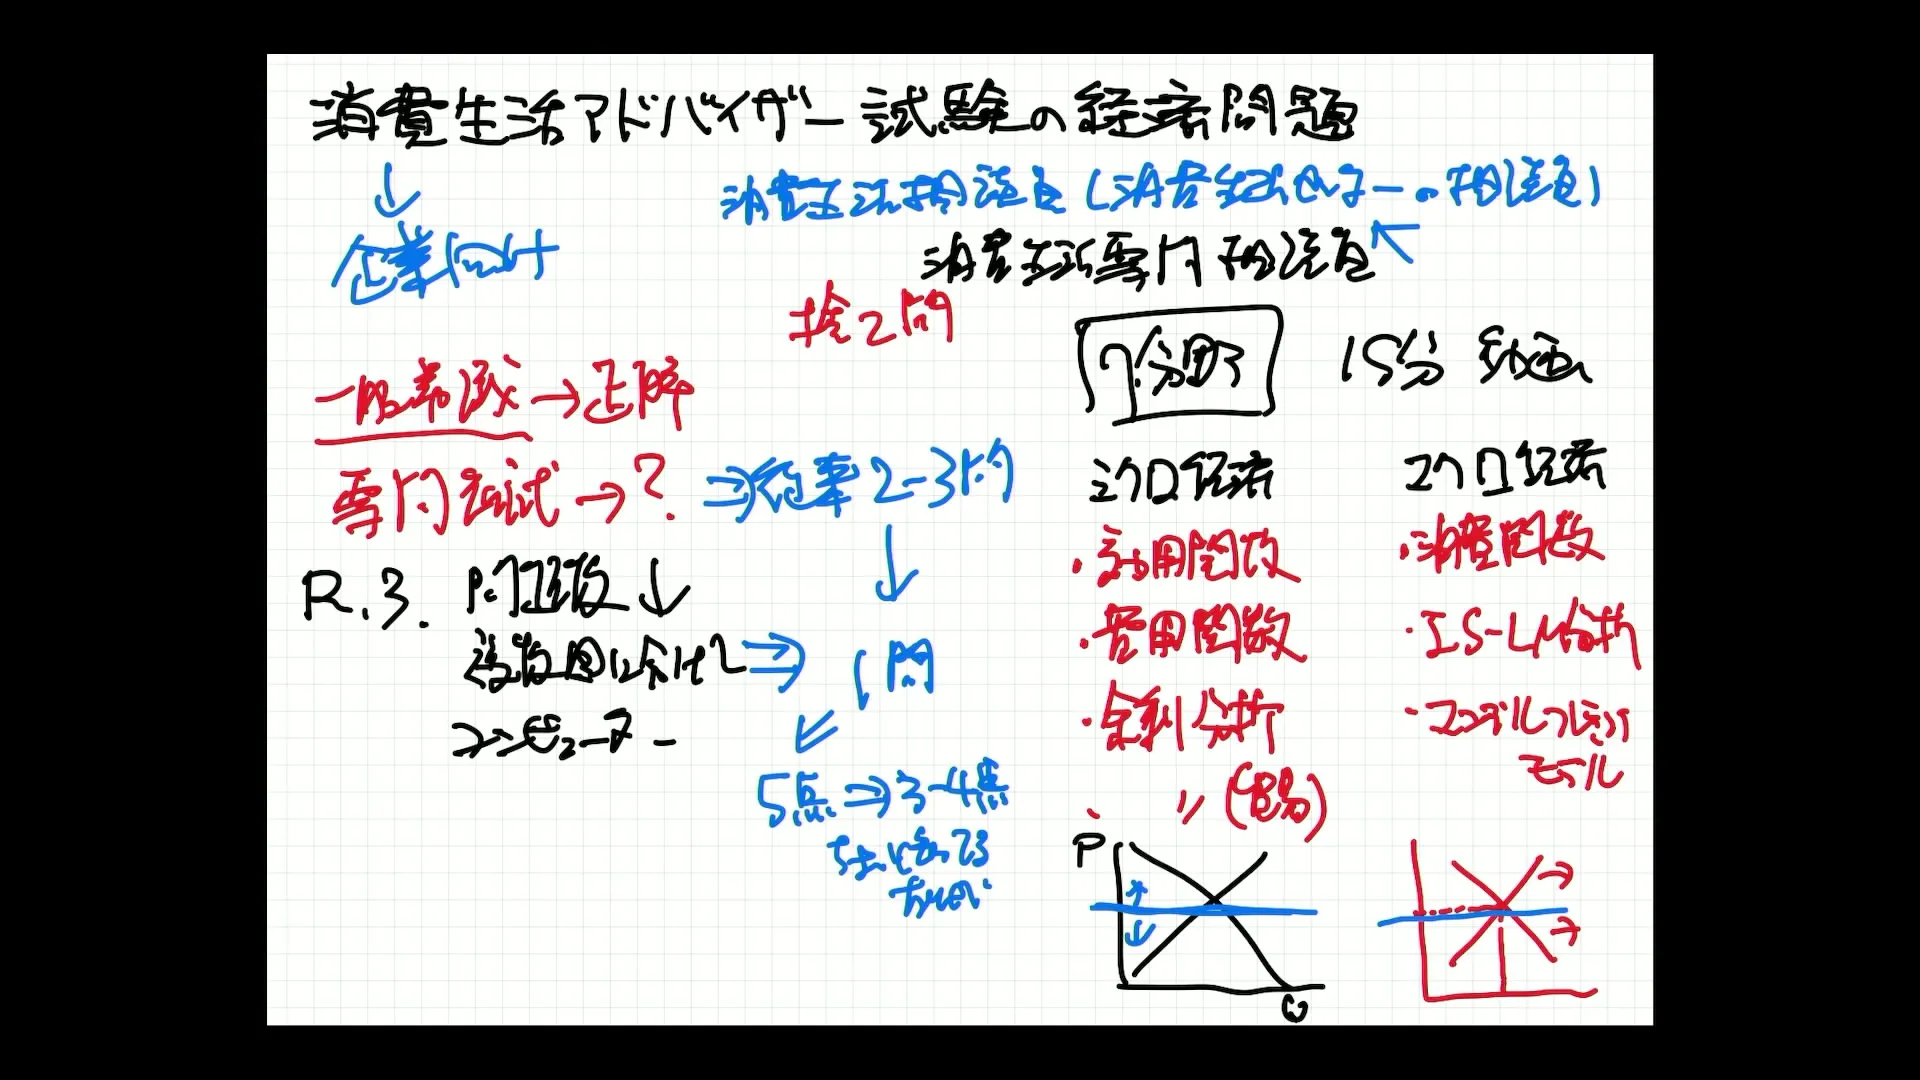 消費生活アドバイザー試験の経済問題
↓
企業向け
消費生活相談員(消費生活センターの相談員)
消費生活専門相談員
捨て問
7分野 15分 動画
一般常識→正解
専門知試→? ⇒從来2-3問
↓
R.3. 問題数↓
複数回に分けて⇒ 1問
コンピューター
5点⇒3-4点
ミクロ経済
・効用関数
・費用関数
・余剰分析
・〃(貿易)
マクロ経済
・消費関数
・IS-LM分析
・マンデルフレミング
モデル
P
Q